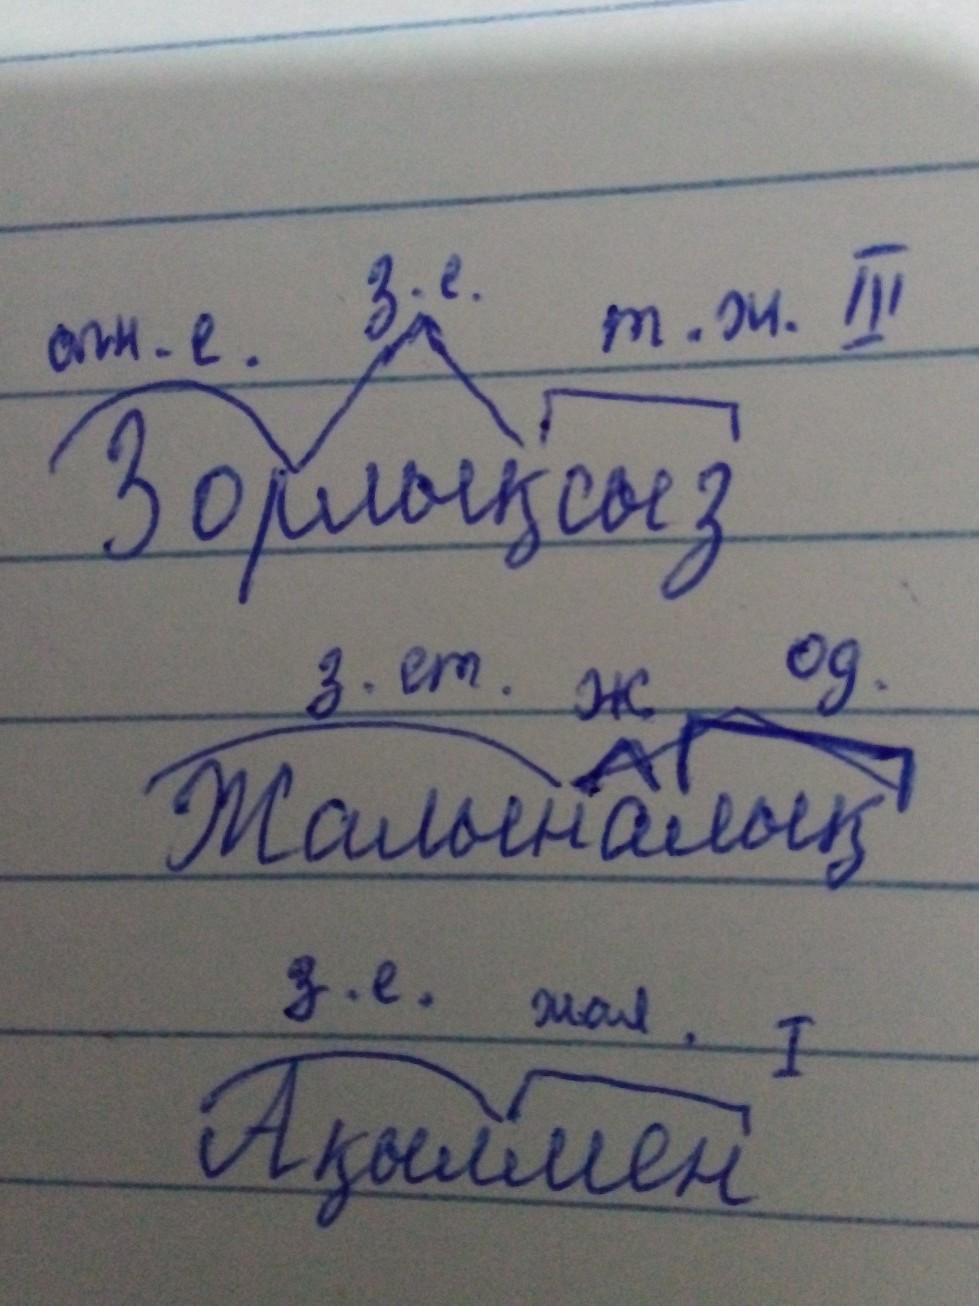 атж.е. з.е. т.ж. III
Зорлықсыз
з.ет. ж од.
Жалыналық
з.е. жал. I
Ақылмен